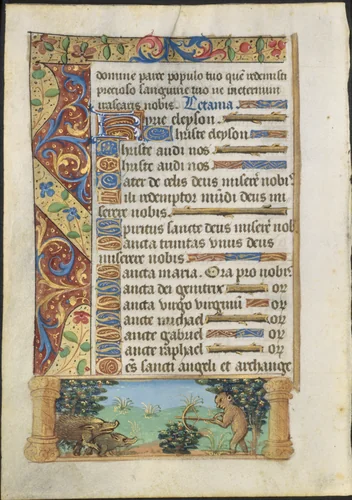 domine parce populo tuo quem redemisti
precioso sanguine tuo ne ineternum
irascaris nobis. Letania
Kyrie eleyson.
Christe eleyson
Christe audi nos
Christe audi nos
Pater de celis deus miserere nobis
Fili redemptor mũdi deus mi
serere nobis.
Spiritus sancte deus miserere nob
Sancta trinitas vnus deus
miserere nobis
Sancta maria. Ora pro nobis
Sancta dei genitrix or
Sancta virgo virginũ or
Sancte michael or
Sancte gabriel or
Sancte raphael or
Oẽs sancti angeli et archange